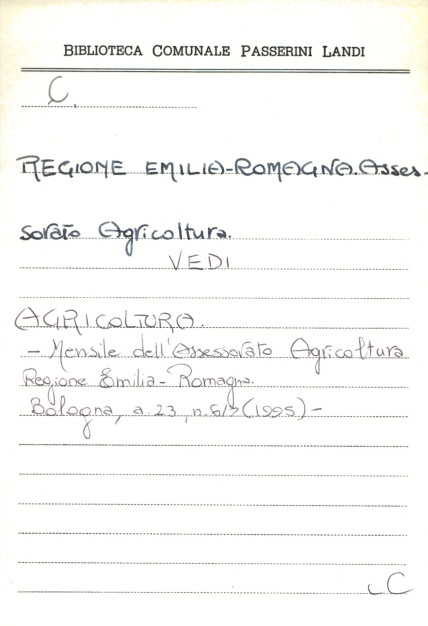 BIBLIOTECA COMUNALE PASSERINI LANDI
C.
REGIONE EMILIA-ROMAGNA. Asses-
sorato Agricoltura.
VEDI
AGRICOLTURA.
- Mensile dell'Assessorato Agricoltura
Regione Emilia-Romagna.
Bologna, a. 23, n. 6/7 (1995) -
C